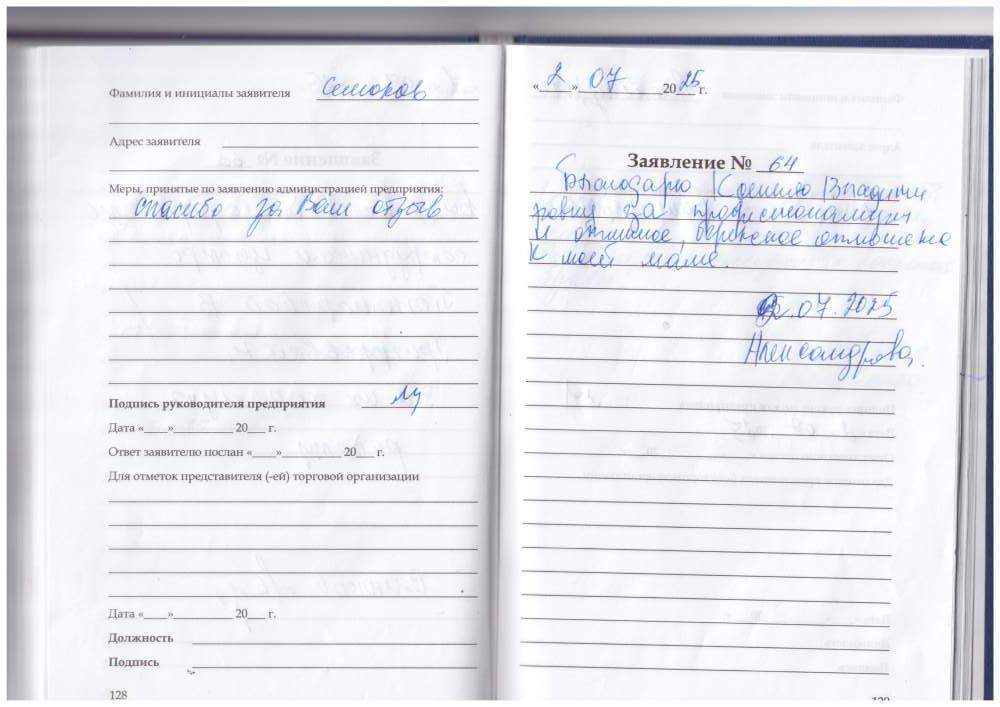 Фамилия и инициалы заявителя
Адрес заявителя
Меры, принятые по заявлению администрацией предприятия:
спасибо за Ваш отзыв
Подпись руководителя предприятия
Дата «___»__________ 20___ г.
Ответ заявителю послан «____»__________ 20___ г.
Для отметок представителя (-ей) торговой организации
Дата «____»__________ 20___ г.
Должность
Подпись
128
« 2 » 07 2025 г.
Заявление № 64
Благодарю Ксению Владими
ровну за профессионализм
и отличное, бережное отношение
к моей маме.
02.07.2025
Александрова.
129